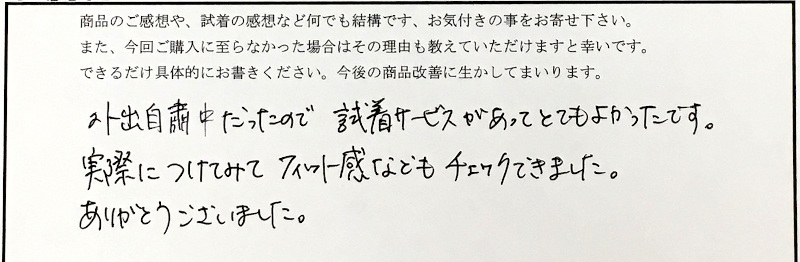 商品のご感想や、試着の感想など何でも結構です、お気付きの事をお寄せ下さい。
また、今回ご購入に至らなかった場合はその理由も教えていただけますと幸いです。
できるだけ具体的にお書きください。今後の商品改善に生かしてまいります。
外出自粛中だったので 試着サービスがあってとてもよかったです。
実際につけてみて フィット感などもチェックできました。
ありがとうございました。